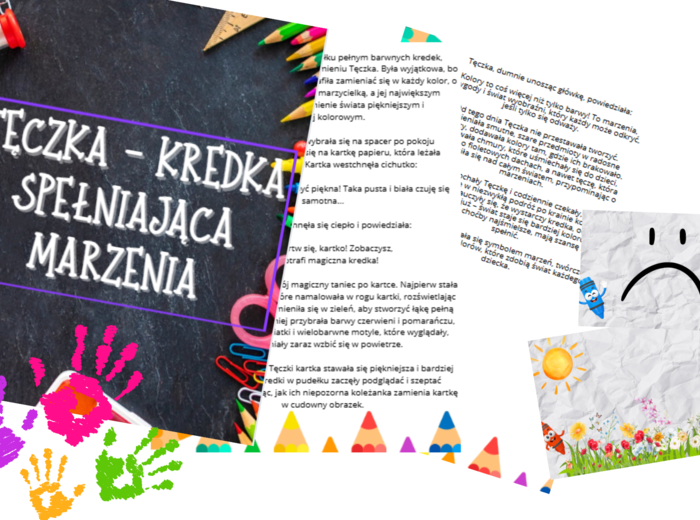 TĘCZKA – KREDKA
SPEŁNIAJĄCA
MARZENIA
pełnym barwnych kredek.
Tęczka. Była wyjątkowa, bo
zamieniać się w każdy kolor, o
marzycielką, a jej największym
świata piękniejszym i
kolorowym.
wybrała się na spacer po pokoju
się na kartkę papieru, która leżała
Kartka westchnęła cichutko:
być piękna! Taka pusta i biała czuję się
samotna...
się ciepło i powiedziała:
się, kartko! Zobaczysz,
magiczna kredka!
magiczny taniec po kartce. Najpierw stała
namalowała w rogu kartki, rozświetlając
się w zieleń, aby stworzyć łąkę pełną
przybrała barwy czerwieni i pomarańczu,
i wielobarwne motyle, które wyglądały,
zaraz wzbić się w powietrze.
Tęczki kartka stawała się piękniejsza i bardziej
w pudełku zaczęły podglądać i szeptać
jak ich niepozorna koleżanka zamienia kartkę
w cudowny obrazek.
Tęczka, dumnie unosząc główkę, powiedziała:
Kolory to coś więcej niż tylko barwy! To marzenia,
i świat wyobraźni, który każdy może odkryć,
jeśli tylko się odważy.
tego dnia Tęczka nie przestawała tworzyć.
smutne, szare przedmioty w radosne
dodawała kolory tam, gdzie ich brakowało.
chmury, które uśmiechały się do dzieci,
o fioletowych dachach, a nawet tęczę, która
się nad całym światem, przypominając o
marzeniach.
Tęczkę i codziennie czekały,
w niezwykłą podróż po krainie
się, że wystarczy kredka,
– świat staje się bardziej
choćby najśmielsze, mają szansę
spełnić.
się symbolem marzeń,
które zdobią świat każdego
dziecka.